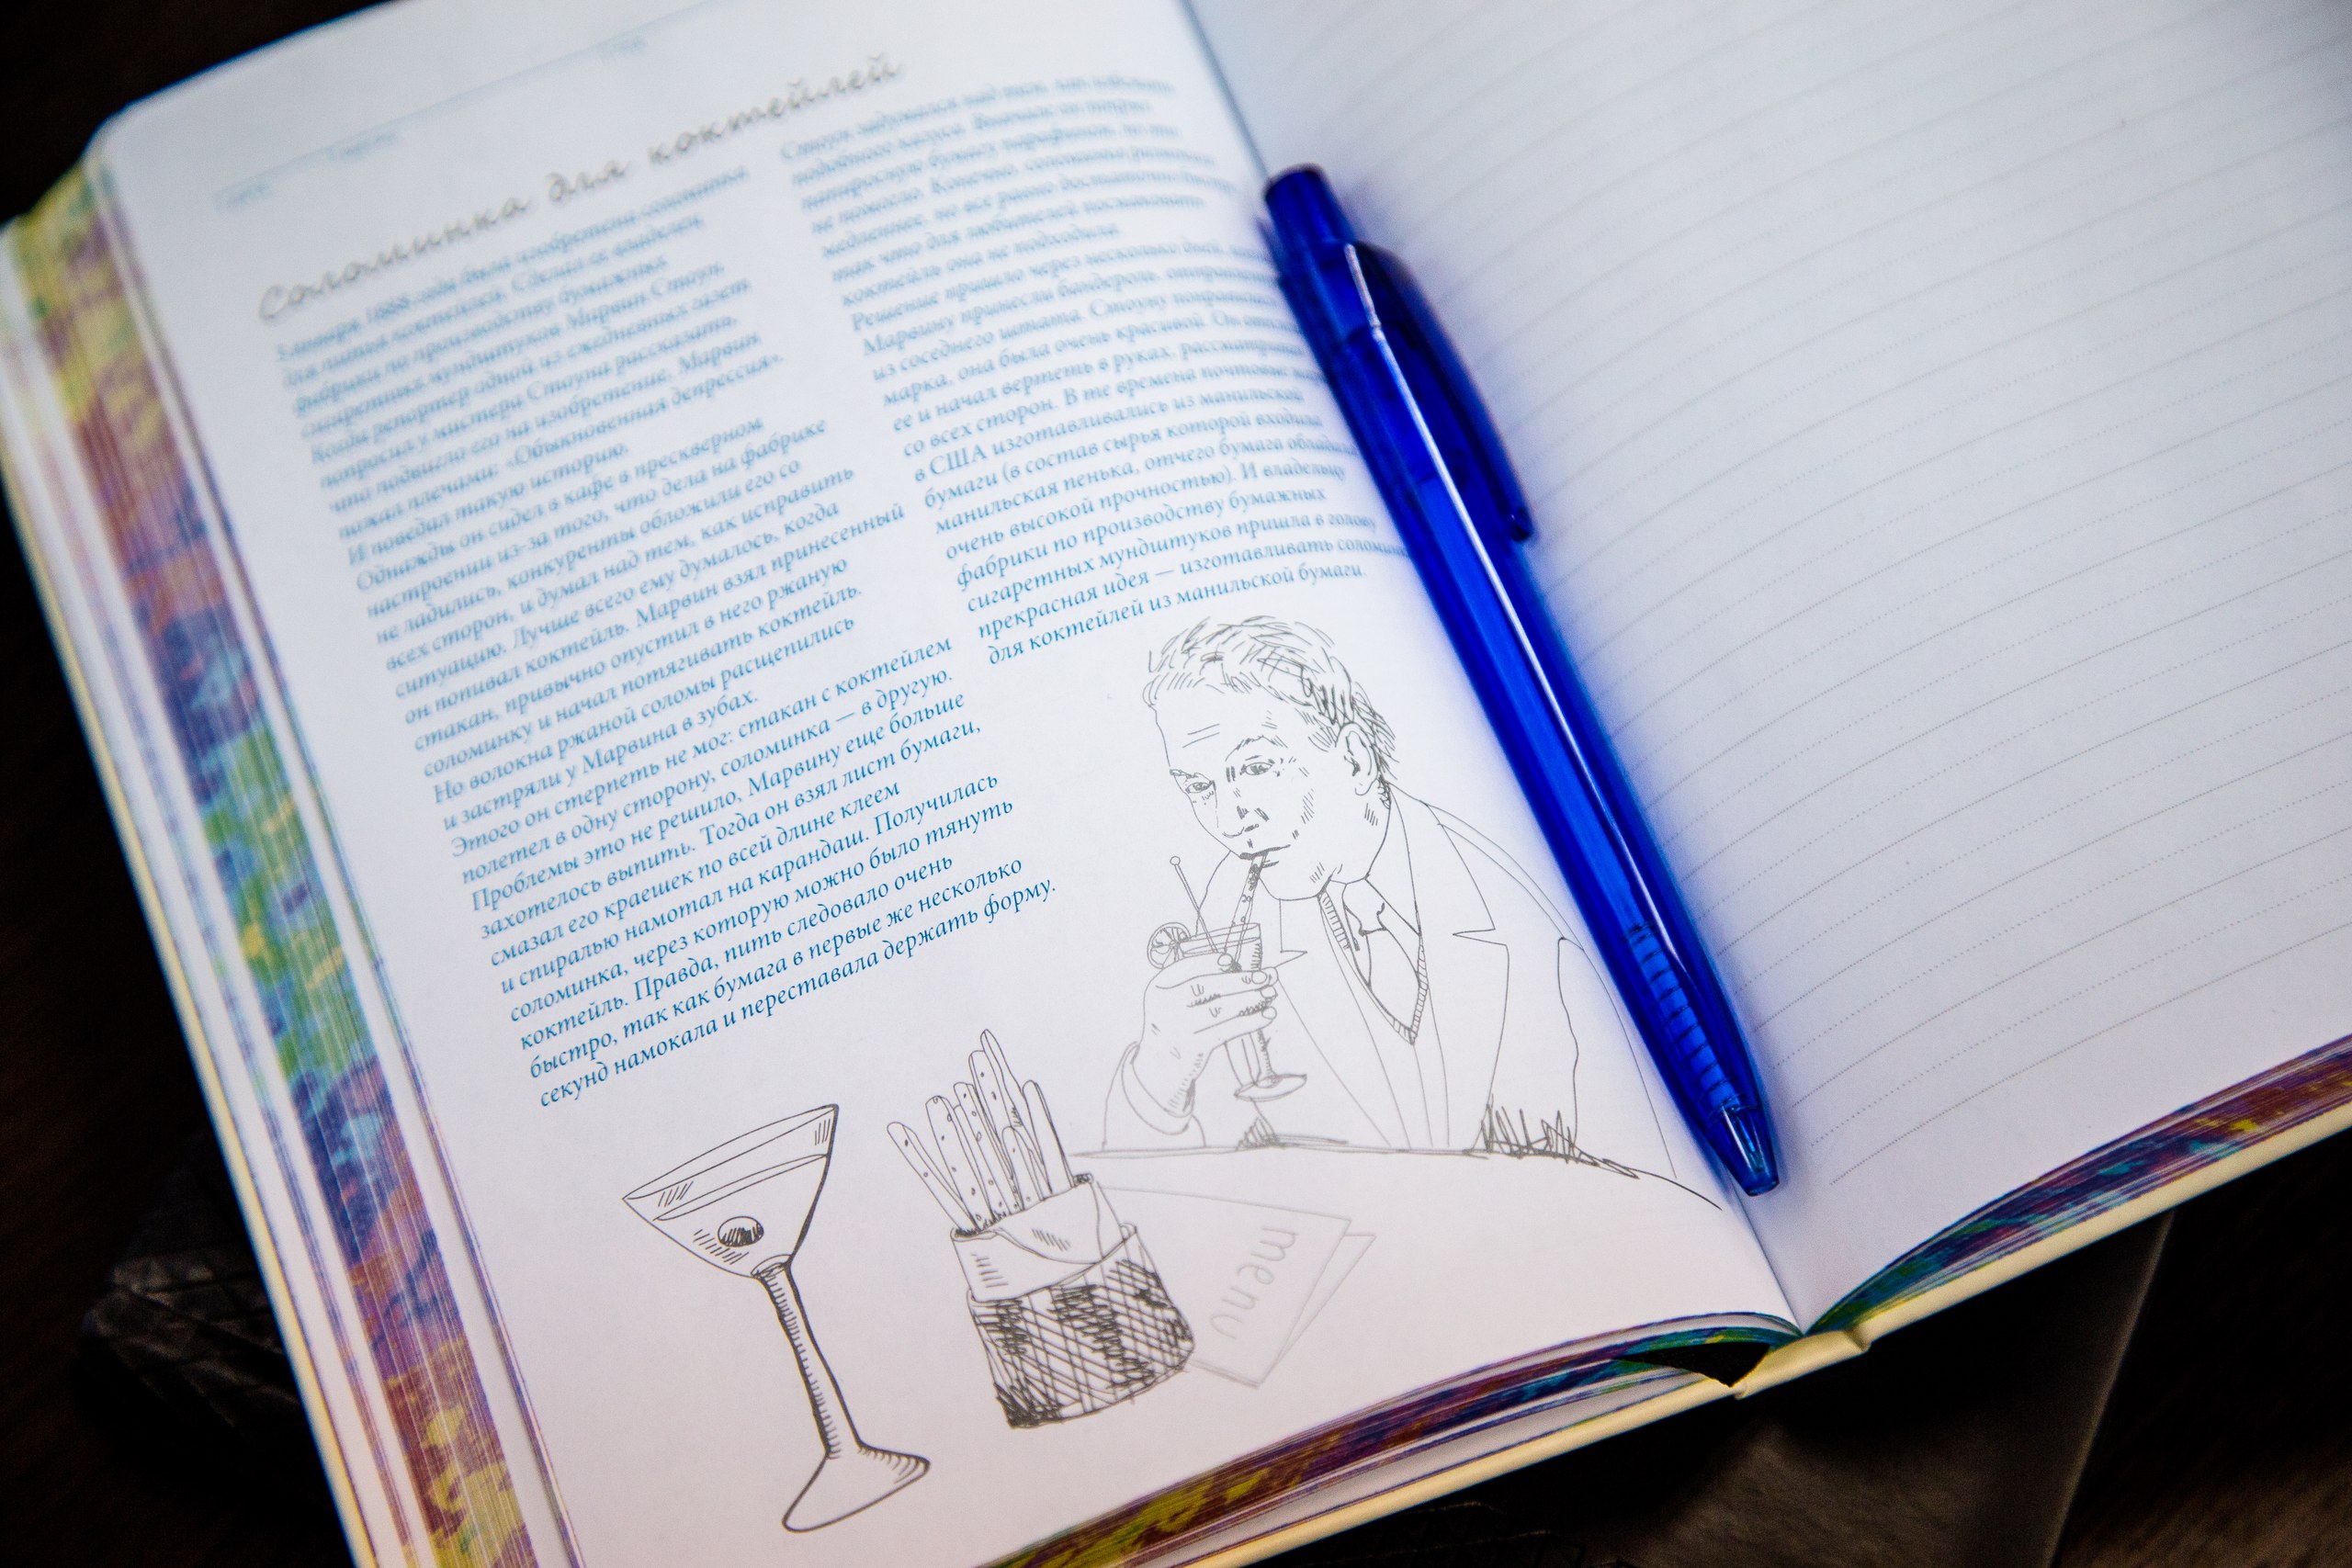 Соломинка для коктейлей
3 января 1888 года была изобретена соломинка
для питья коктейлей. Сделал ее владелец
фабрики по производству бумажных
сигаретных мундштуков Марвин Стоун.
Когда репортер одной из ежедневных газет
попросил у мистера Стоуна рассказать,
что подвигло его на изобретение, Марвин
пожал плечами: «Обыкновенная депрессия».
И поведал такую историю.
Однажды он сидел в кафе в прескверном
настроении из-за того, что дела на фабрике
не ладились, конкуренты обложили его со
всех сторон, и думал над тем, как исправить
ситуацию. Лучше всего ему думалось, когда
он попивал коктейль. Марвин взял принесенный
стакан, привычно опустил в него ржаную
соломинку и начал потягивать коктейль.
Но волокна ржаной соломы расщепились
и застряли у Марвина в зубах.
Этого он стерпеть не мог: стакан с коктейлем
полетел в одну сторону, соломинка — в другую.
Проблемы это не решило, Марвину еще больше
захотелось выпить. Тогда он взял лист бумаги,
смазал его краешек по всей длине клеем
и спиралью намотал на карандаш. Получилась
соломинка, через которую можно было тянуть
коктейль. Правда, пить следовало очень
быстро, так как бумага в первые же несколько
секунд намокала и переставала держать форму.
Стоун задумался над тем, как избежать
подобного казуса. Вначале он
папиросную бумагу парафином, но это
не помогло. Конечно, соломинка
медленнее, но все равно достаточно
так что для любителей посмаковать
коктейль она не подходила.
Решение пришло через несколько дней,
Марвину принесли бандероль,
из соседнего штата. Стоуну понравилась
марка, она была очень красивой. Он
ее и начал вертеть в руках, рассматривая
со всех сторон. В те времена почтовые
в США изготавливались из манильской
бумаги (в состав сырья которой входила
манильская пенька, отчего бумага обладала
очень высокой прочностью). И владельцу
фабрики по производству бумажных
сигаретных мундштуков пришла в голову
прекрасная идея — изготавливать соломинки
для коктейлей из манильской бумаги.
menu